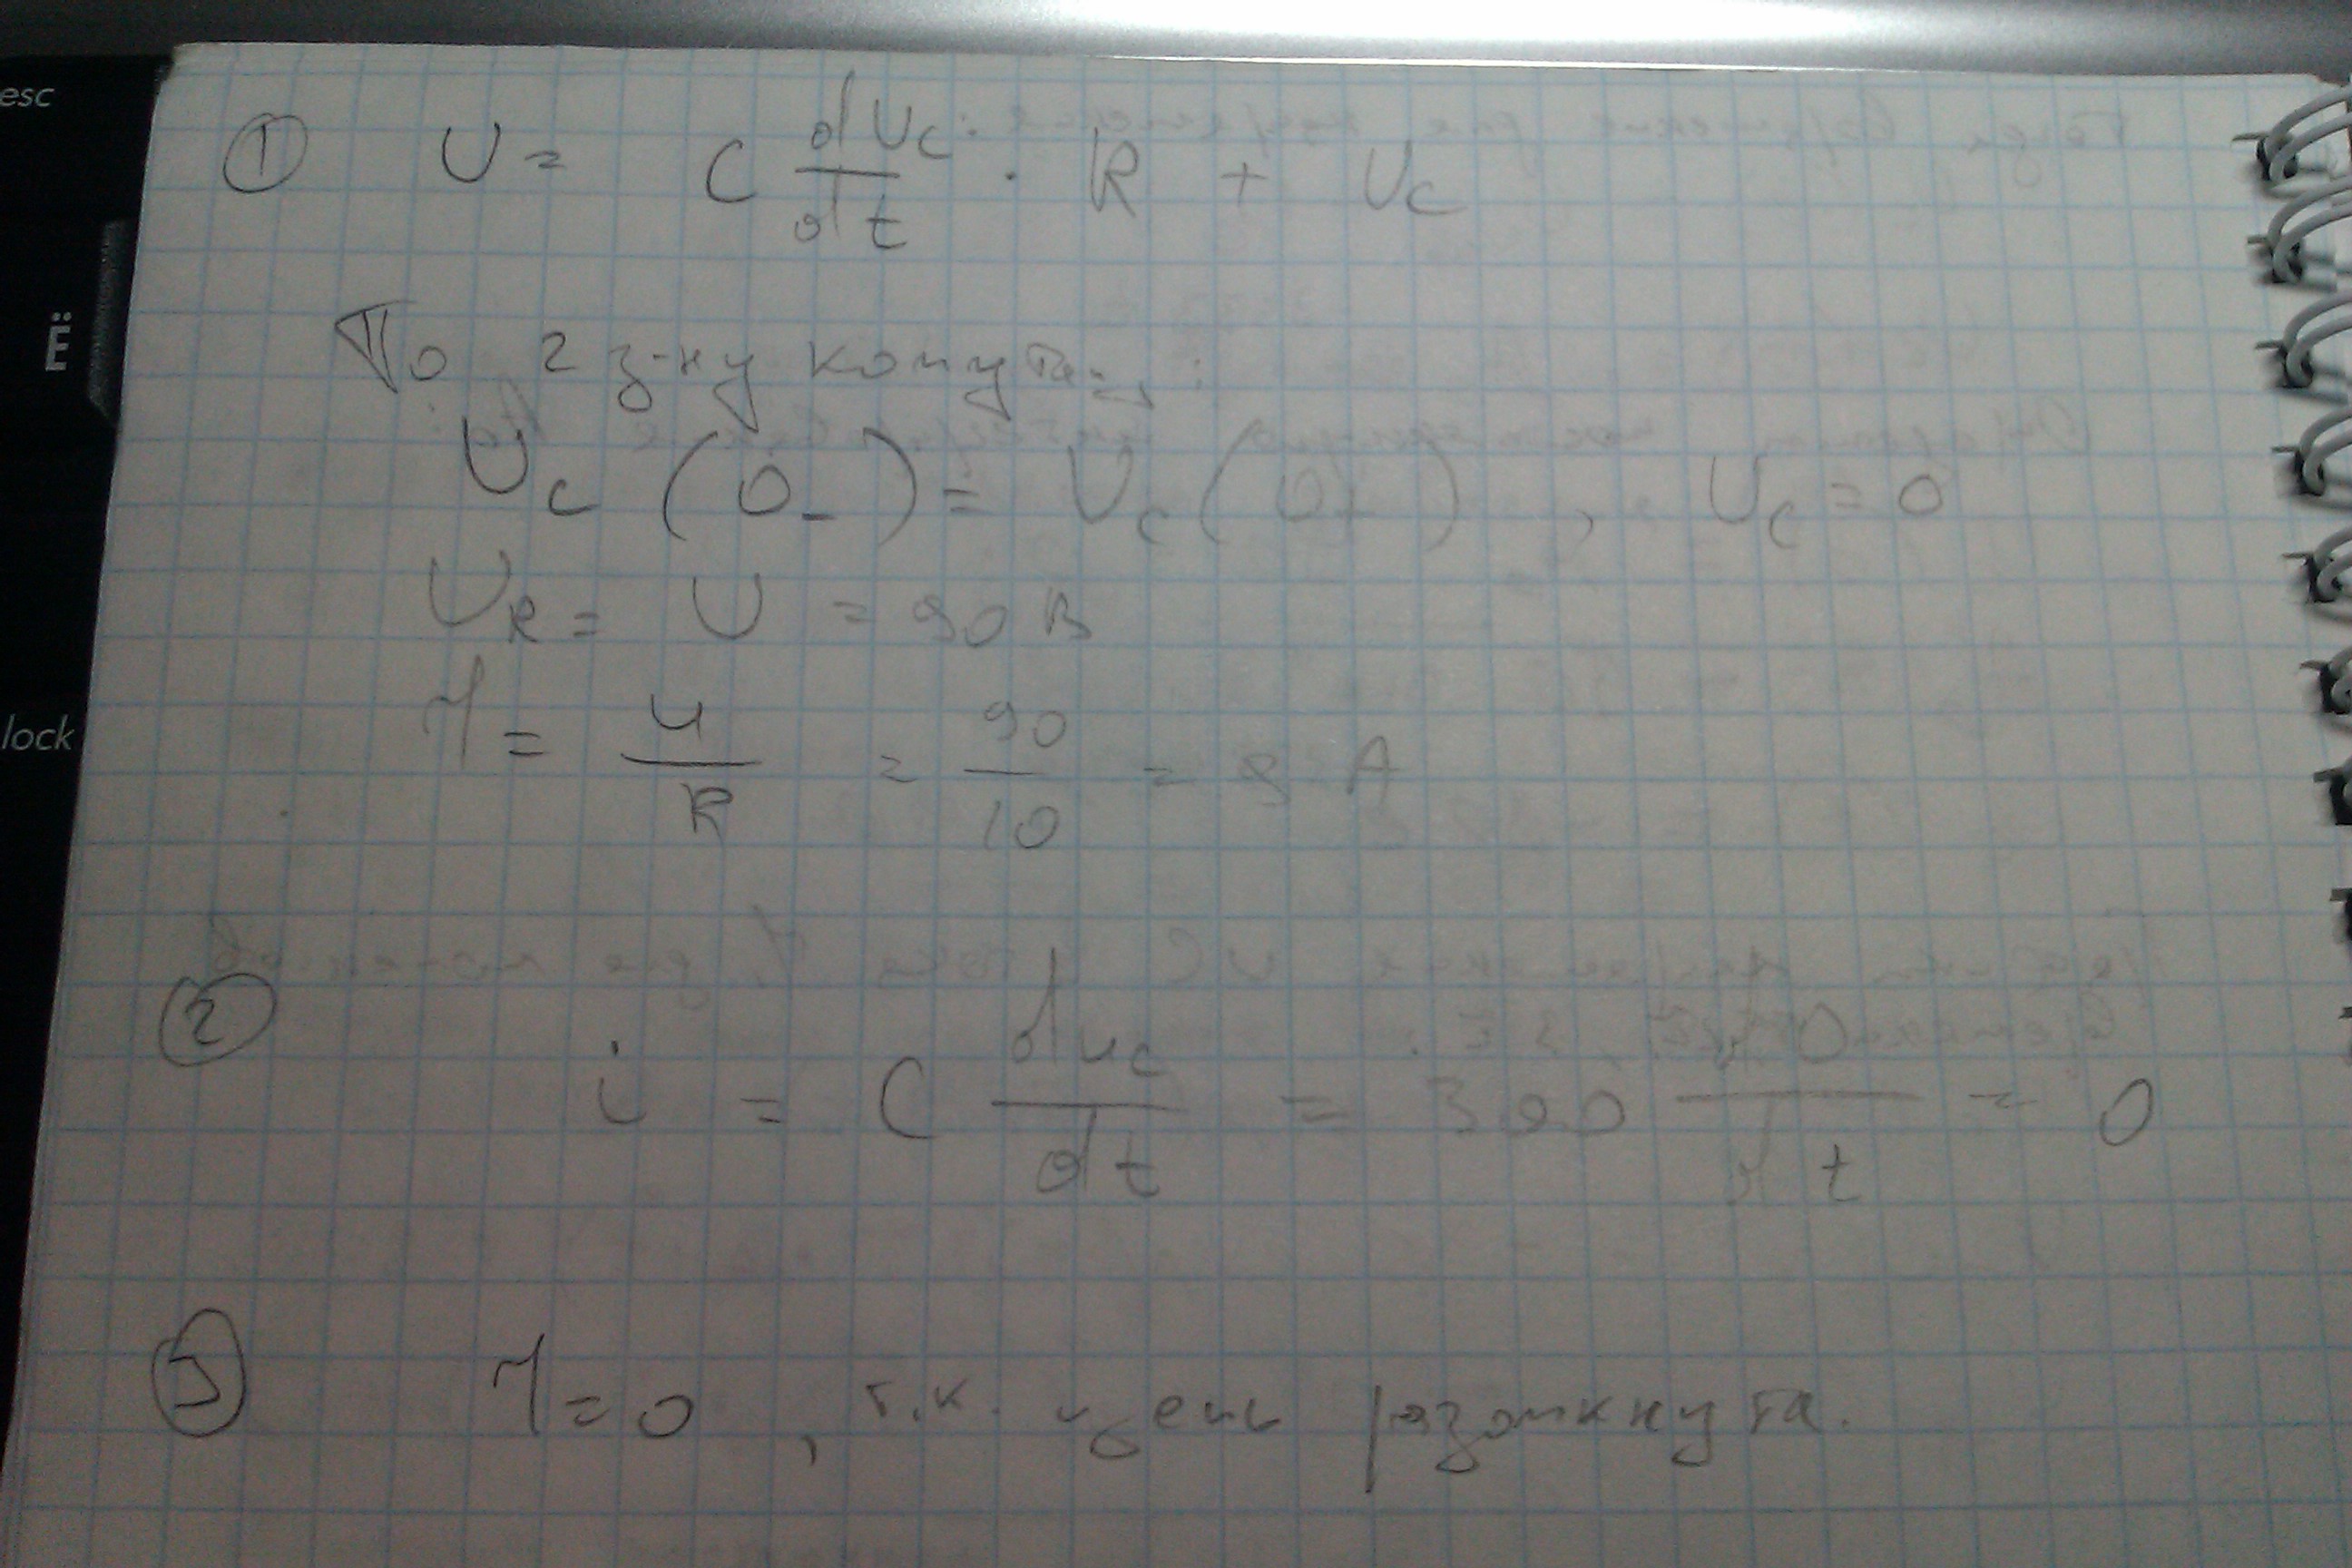 esc
Ё
lock
① U = C dUc/dt · R + Uc
По 2 з-ну комутац:
Uc (0_) = Uc (0+) , Uc = 0
UR = U = 90 В
I = U/R = 90/10 = 9 А
② i = C duc/dt = 300 /dt = 0
③ I = 0 , т.к. цепь разомкнута.